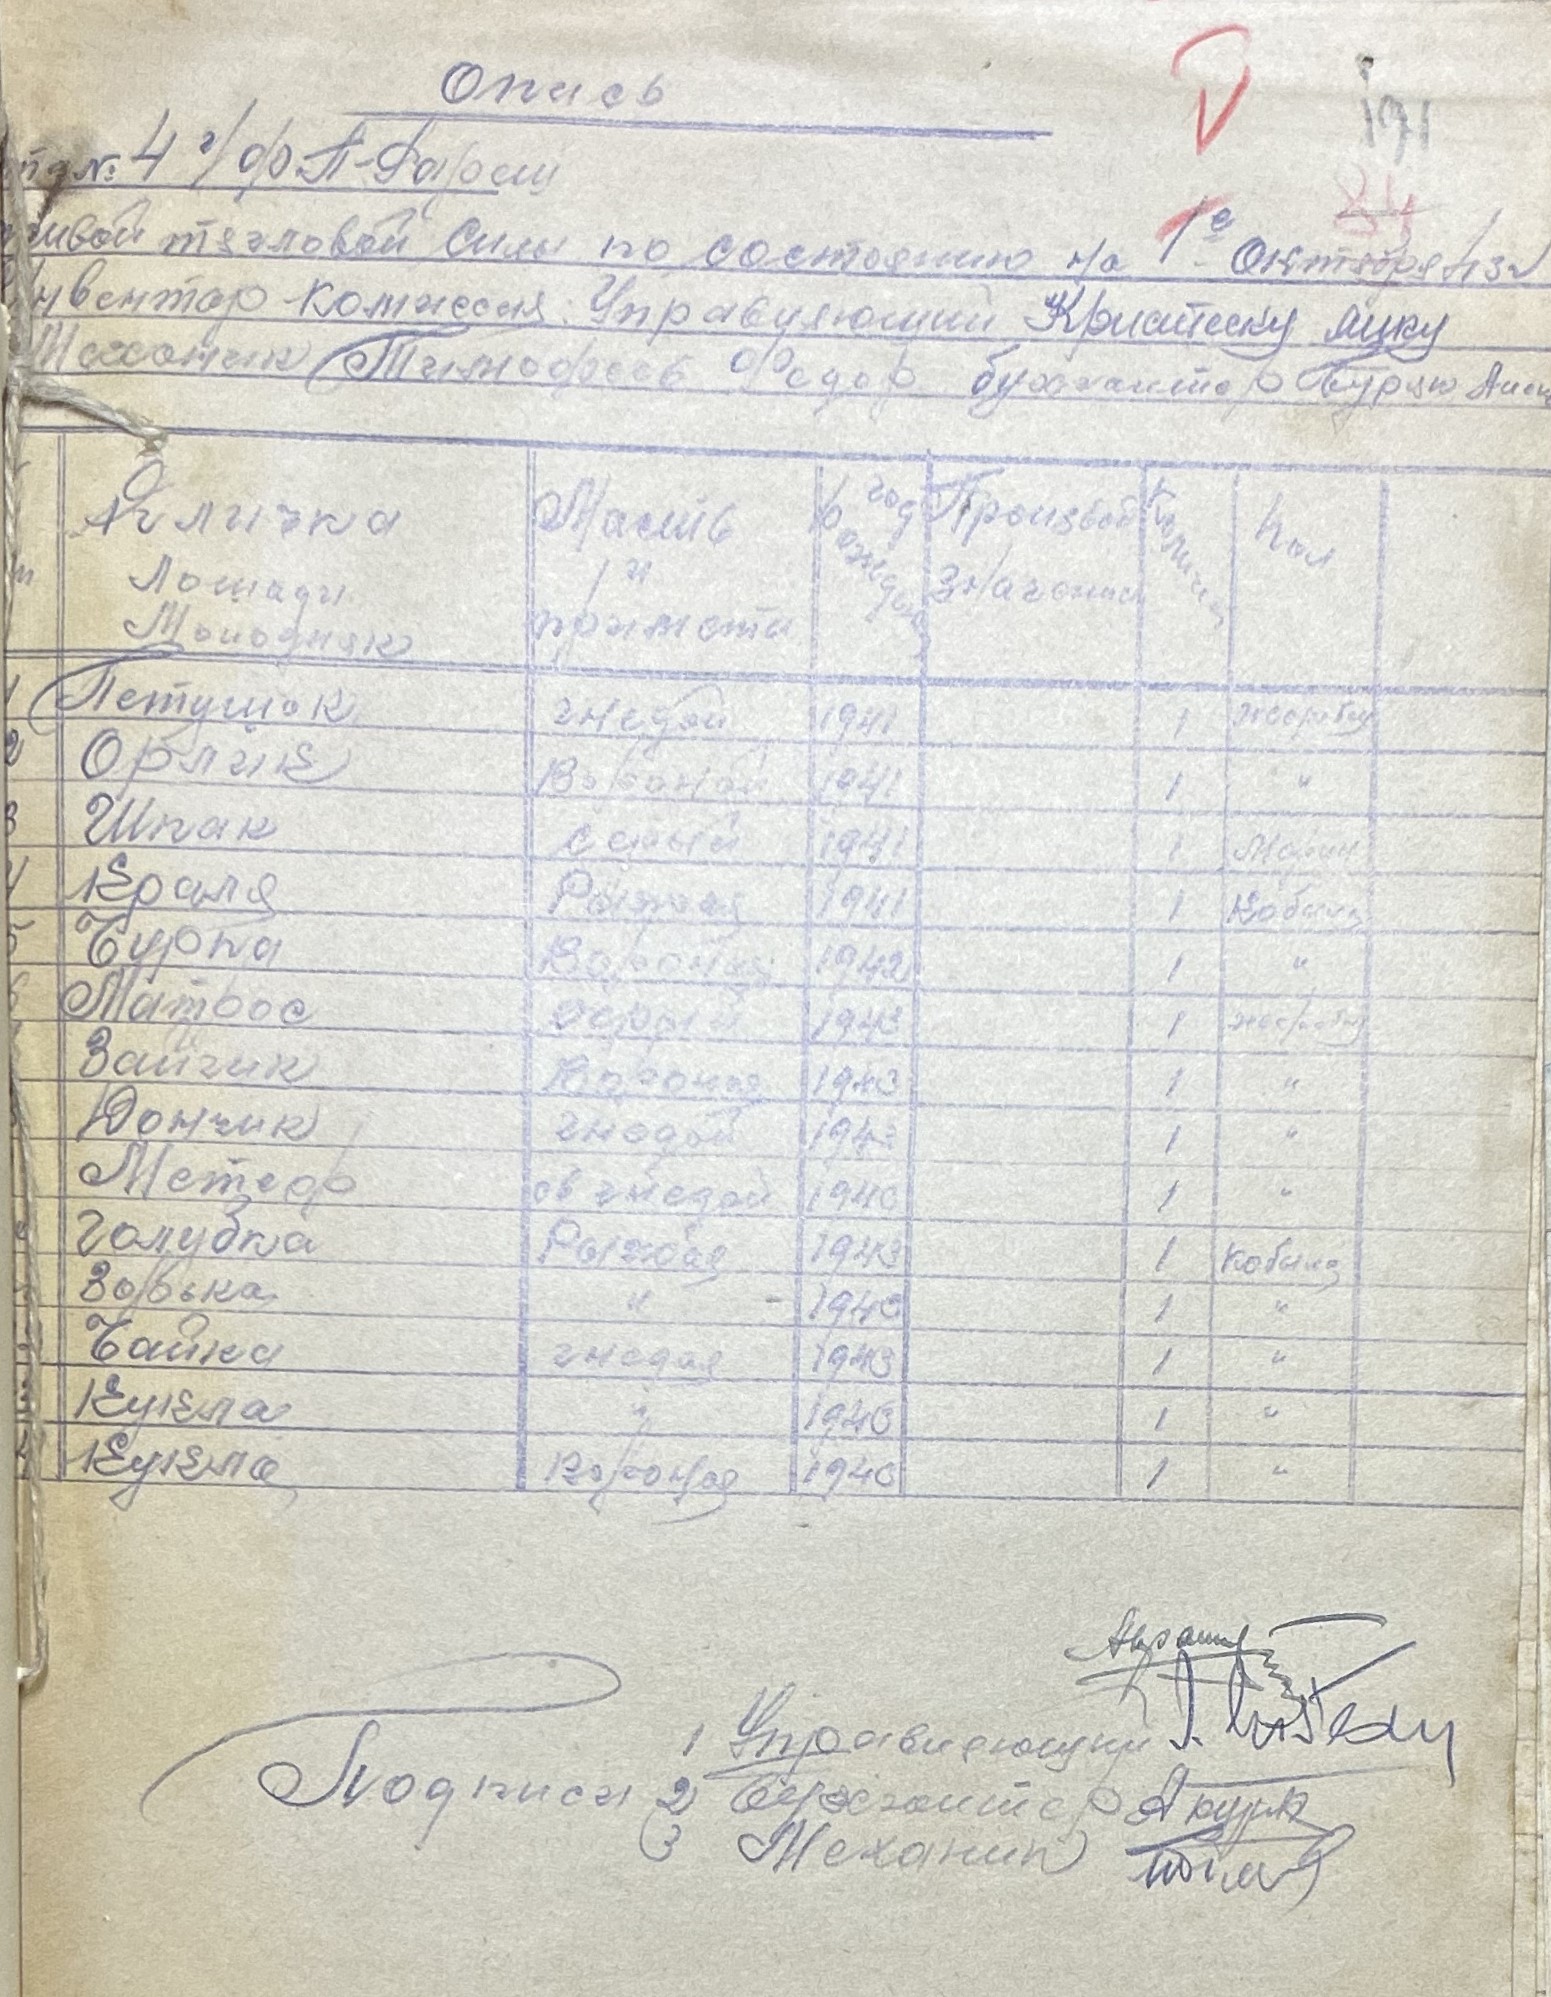 Опись
191
84
№ 4
живой тягловой силы по состоянию на 1е Октября 43 г
Инвентар-комиссия: Управляющий Кристеску
Механик Тимофеев Федор бухгалтер Буряк
Кличка Лошади Молодняк | Масть и приметы | год рождения | Производ значение | Количест | Пол
1 Петушок гнедой 1941 1 Жеребец
2 Орлик Вороной 1941 1 "
3 Шпак Серый 1941 1 Мерин
4 Краля Рыжая 1941 1 Кобыла
5 Бурка Вороная 1942 1 "
6 Матрос Серый 1943 1 Жеребец
Зайчик Вороная 1943 1 "
Дончик гнедой 1943 1 "
Метеор гнедой 1943 1 "
Голубка Рыжая 1943 1 Кобыла
Зорька " - 1943 1 "
Чайка гнедая 1943 1 "
Кукла " 1943 1 "
Кукла Вороная 1943 1 "
1 Управляющий
Подписи 2 Бухгалтер
3 Механик